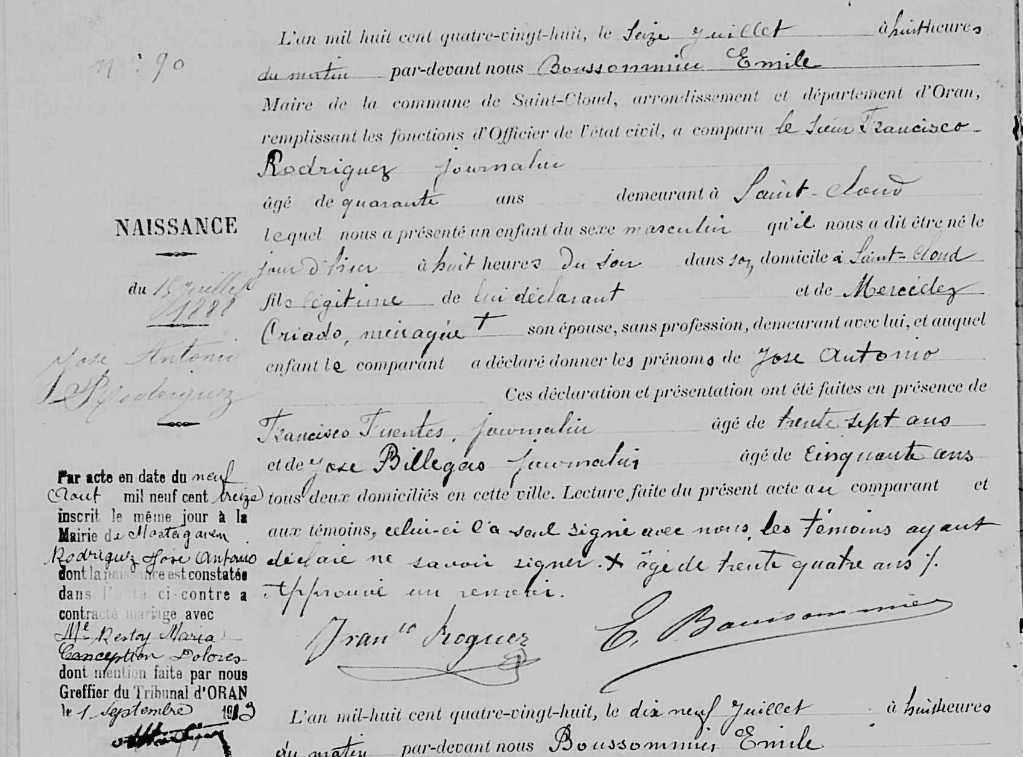 N° 90
NAISSANCE
du 15 Juillet
1888
Jose Antonio
Rodriguez
Par acte en date du neuf
Aout mil neuf cent treize
inscrit le même jour à la
Mairie de Mostaganem
Rodriguez José Antonio
dont la naissance est constatée
dans l'acte ci-contre a
contracté mariage avec
Mlle Restoy Maria
Conception Dolores
dont mention faite par nous
Greffier du Tribunal d'ORAN
le 1 Septembre 1913
L'an mil huit cent quatre-vingt-huit, le Seize Juillet à huit heures
du matin par-devant nous Boussommier Emile
Maire de la commune de Saint-Cloud, arrondissement et département d'Oran,
remplissant les fonctions d'Officier de l'état civil, a comparu le Sieur Francisco
Rodriguez journalier
âgé de quarante ans demeurant à Saint-Cloud
lequel nous a présenté un enfant du sexe masculin qu'il nous a dit être né le
jour d'hier à huit heures du soir dans son domicile à Saint-Cloud
fils légitime de lui déclarant et de Mercédez
Criado, ménagère + son épouse, sans profession, demeurant avec lui, et auquel
enfant le comparant a déclaré donner les prénoms de Jose Antonio
Ces déclaration et présentation ont été faites en présence de
Francisco Fuentes, journalier âgé de trente sept ans
et de Jose Billegas journalier âgé de Cinquante ans
tous deux domiciliés en cette ville. Lecture faite du présent acte au comparant et
aux témoins, celui-ci l'a seul signé avec nous, les témoins ayant
déclaré ne savoir signer. + âgé de trente quatre ans /.
Approuvé un renvoi.
Fran.co Roguez E. Boussommier
L'an mil-huit cent quatre-vingt-huit, le dix neuf Juillet à huit heures
du matin par-devant nous Boussommier Emile